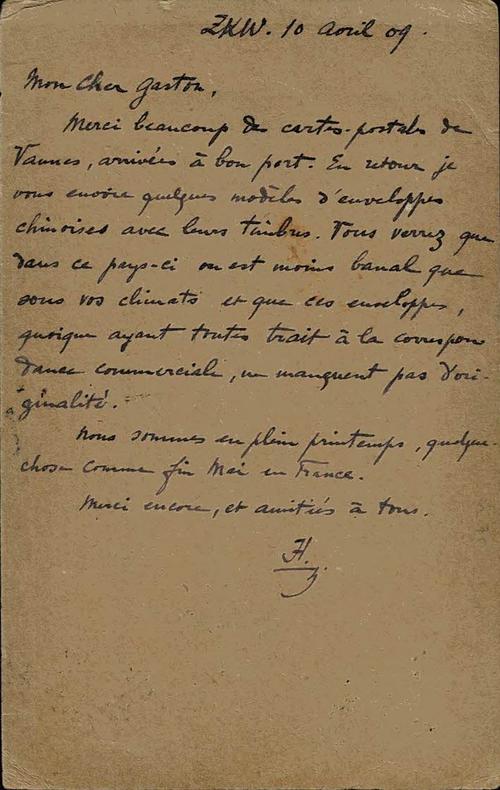 ZKW. 10 avril 09.
Mon cher Gaston,
Merci beaucoup des cartes-postales de
Vannes, arrivées à bon port. En retour je
vous envoie quelques modèles d'enveloppes
chinoises avec leurs timbres. Vous verrez que
dans ce pays-ci on est moins banal que
sous vos climats et que ces enveloppes,
quoique ayant toutes trait à la correspon
dance commerciale, ne manquent pas d'ori-
ginalité.
Nous sommes en plein printemps, quelque-
chose comme fin Mai en France.
Merci encore, et amitiés à tous.
H.